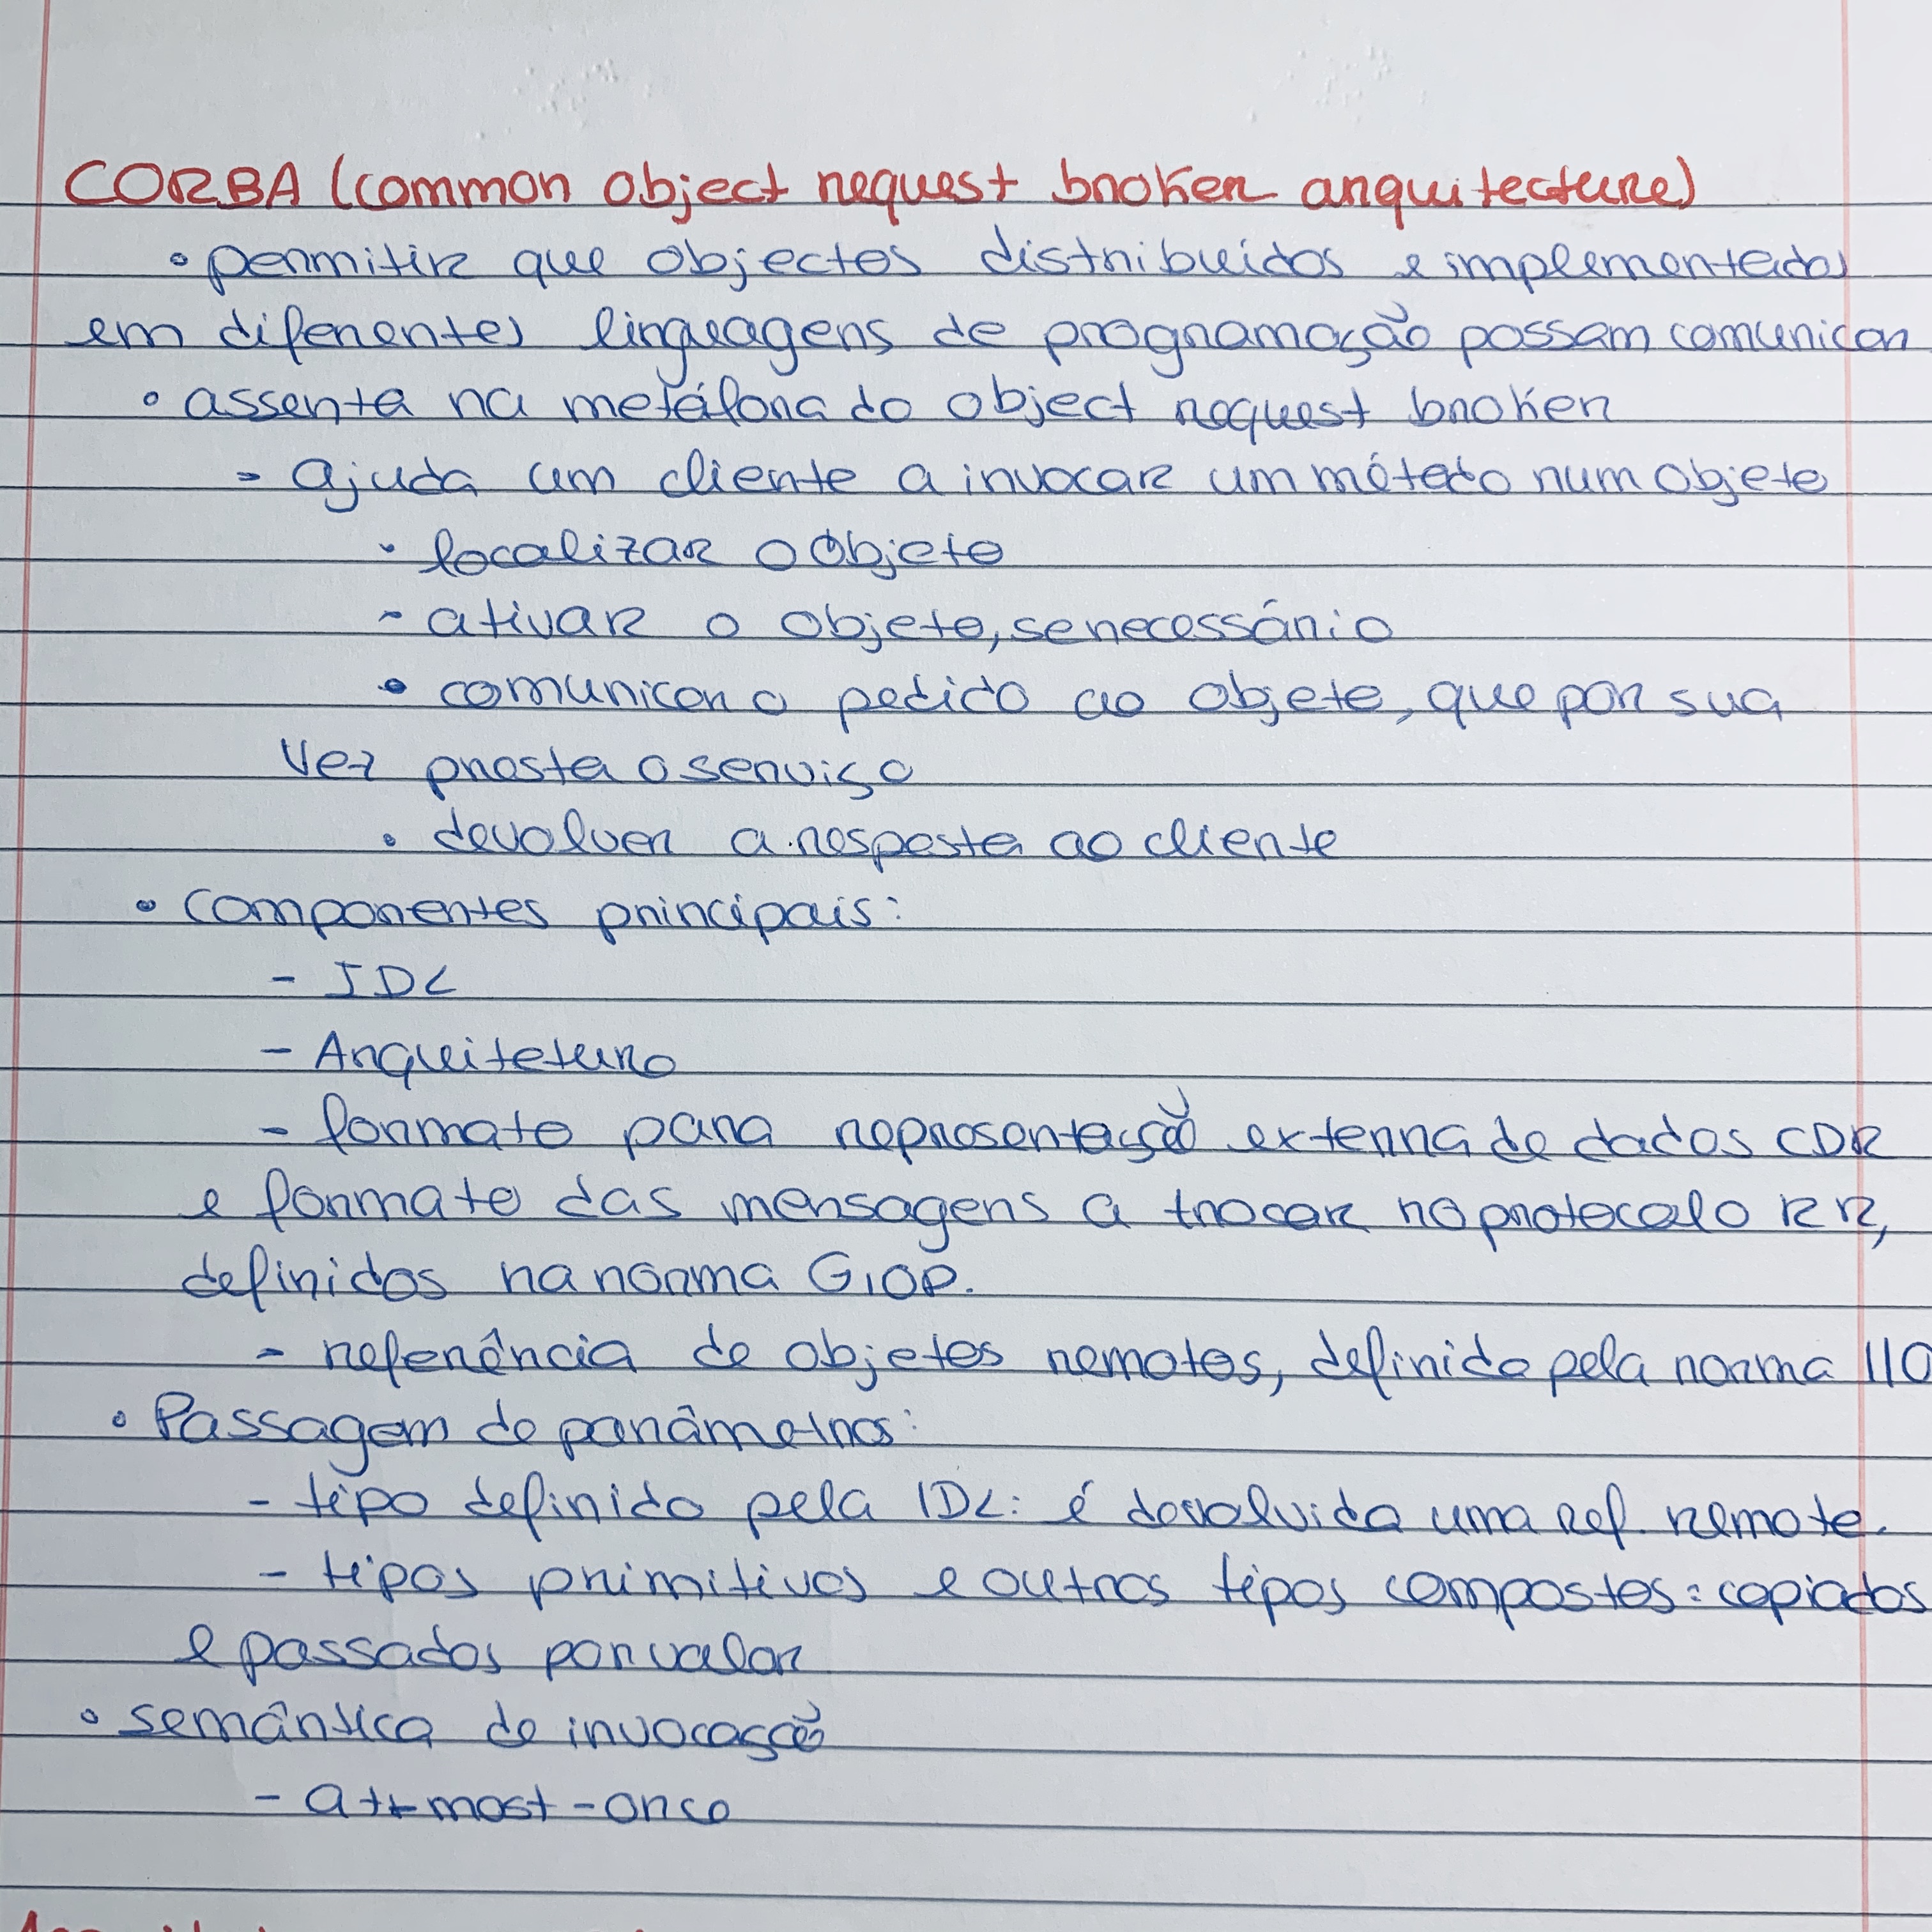 CORBA (common object request broker arquitecture)
• permitir que objectos distribuídos e implementados
em diferentes linguagens de programação possam comunicar
• assenta na metáfora do object request broker
- ajuda um cliente a invocar um método num objeto
• localizar o objeto
- ativar o objeto, se necessário
• comunicar o pedido ao objeto, que por sua
vez presta o serviço
• devolver a resposta ao cliente
• componentes principais:
- IDL
- Arquitetura
- formato para representação externa de dados CDR
e formato das mensagens a trocar no protocolo RR,
definidos na norma GIOP.
- referência de objetos remotos, definida pela norma IIO
• Passagem de parâmetros:
- tipo definido pela IDL: é devolvida uma ref. remota.
- tipos primitivos e outros tipos compostos: copiados
e passados por valor
• semântica de invocação
- at-most-once